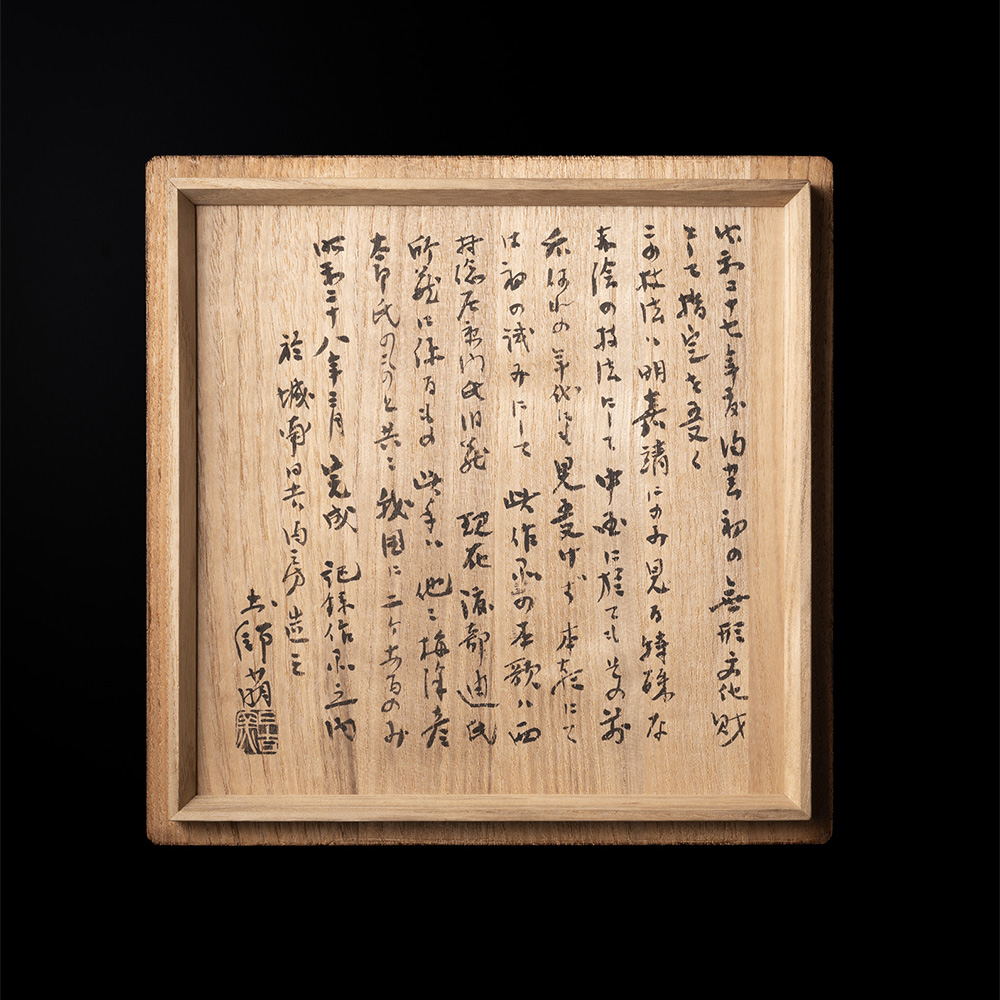 昭和二十七年度 内 初の無形文化財
として指定を受く
この技法ハ明嘉靖にのみ見る特殊な
赤絵の技法にして 中国に於ても其の前
はれの年代にも見受けず 本 にて
は初の試みにして 此作品の本歌ハ西
村総左衛門氏旧蔵 現在渡部迪氏
所蔵に係るもの 此手ハ他ニ梅沢彦
太郎氏のものと共ニ我国に二ケあるのみ
昭和二十八年三月 完成 記録作品之内
於城南日吉内房造之
土師萌